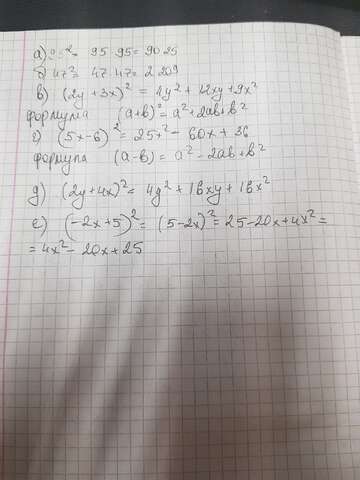 а) 95² = 95 95 = 9025
б) 47² = 47 47 = 2 209
в) (2y + 3x)² = 4y² + 12xy + 9x²
формула (a+b)² = a² + 2ab + b²
г) (5x - 6)² = 25x² - 60x + 36
формула (a-b) = a² - 2ab + b²
д) (2y + 4x)² = 4y² + 16xy + 16x²
е) (-2x + 5)² = (5 - 2x)² = 25 - 20x + 4x² =
= 4x² - 20x + 25